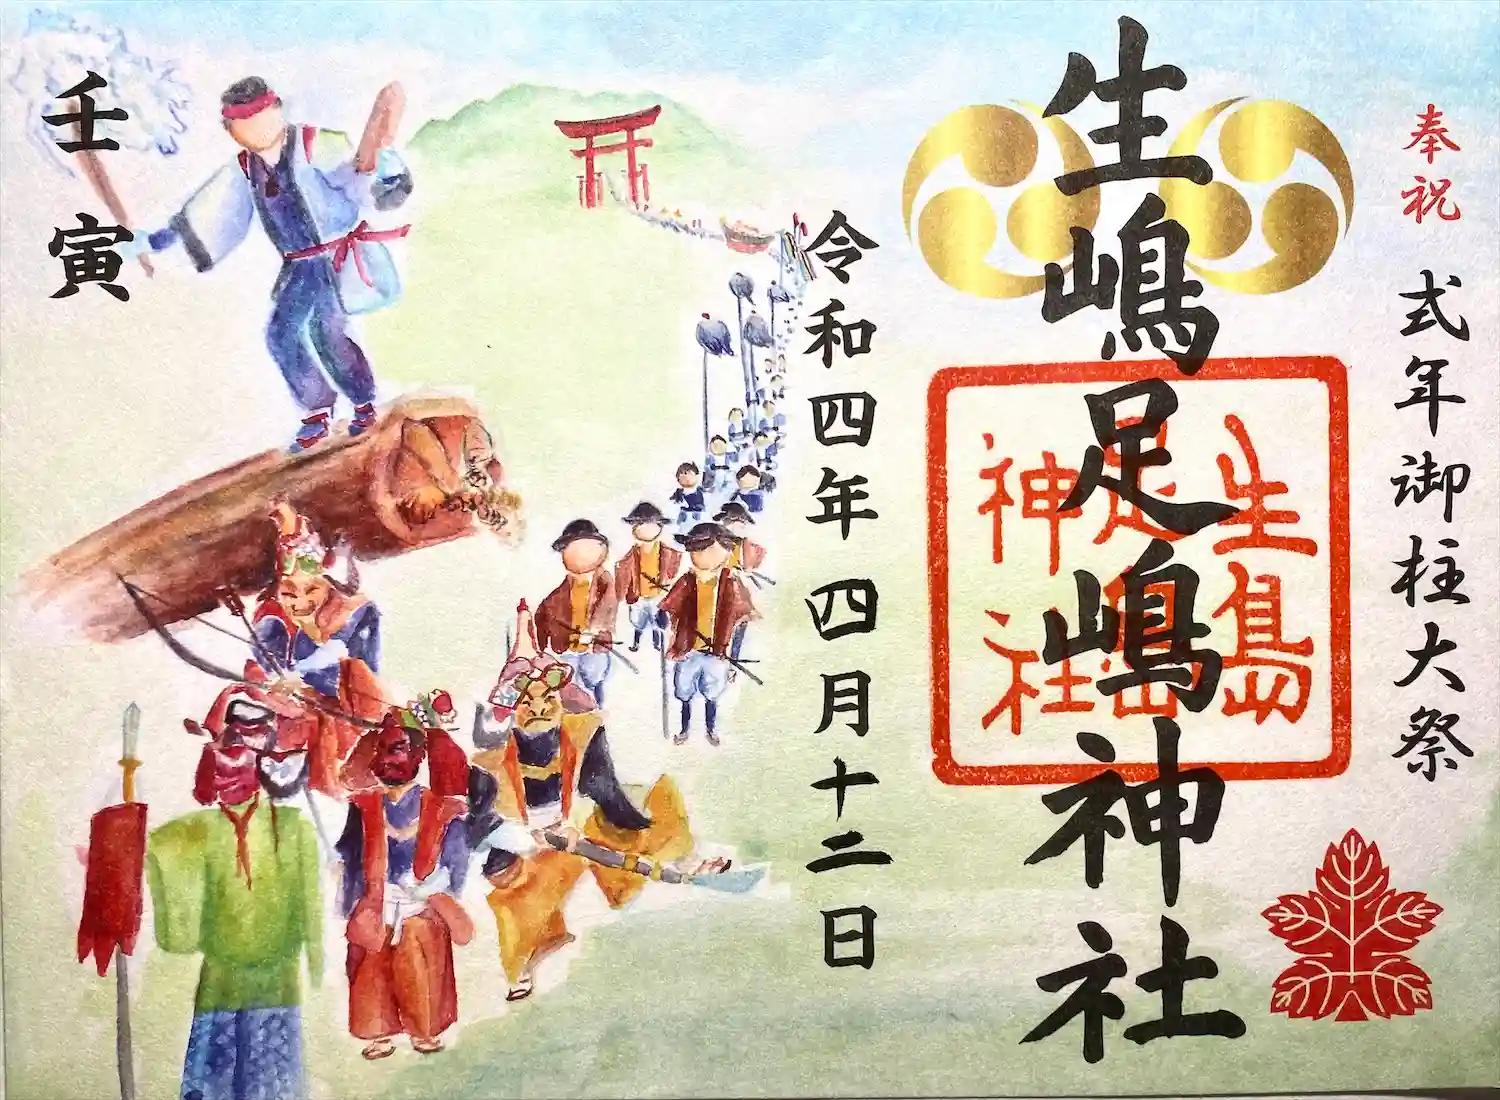 奉祝 式年御柱大祭
生嶋足嶋神社
生島
足島
神社
令和四年 四月十二日
壬寅